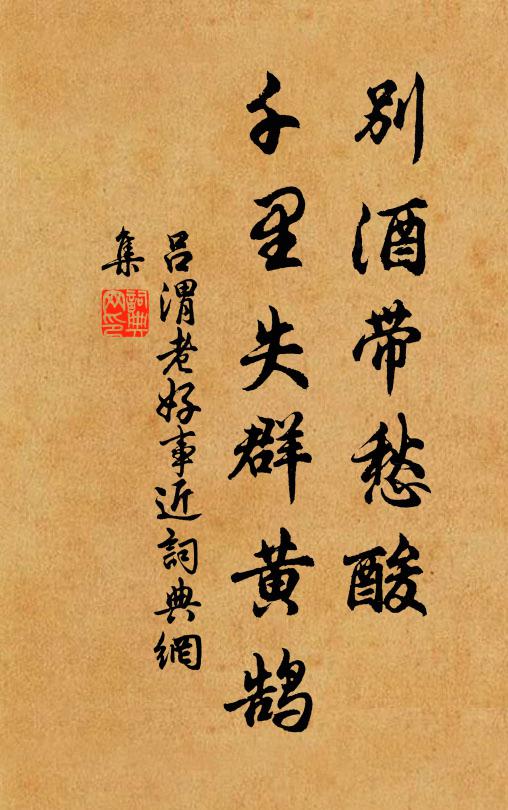 別酒帶愁酸
千里失群黄鹄
吕渭老好事近詞典網
集
詞典
网印